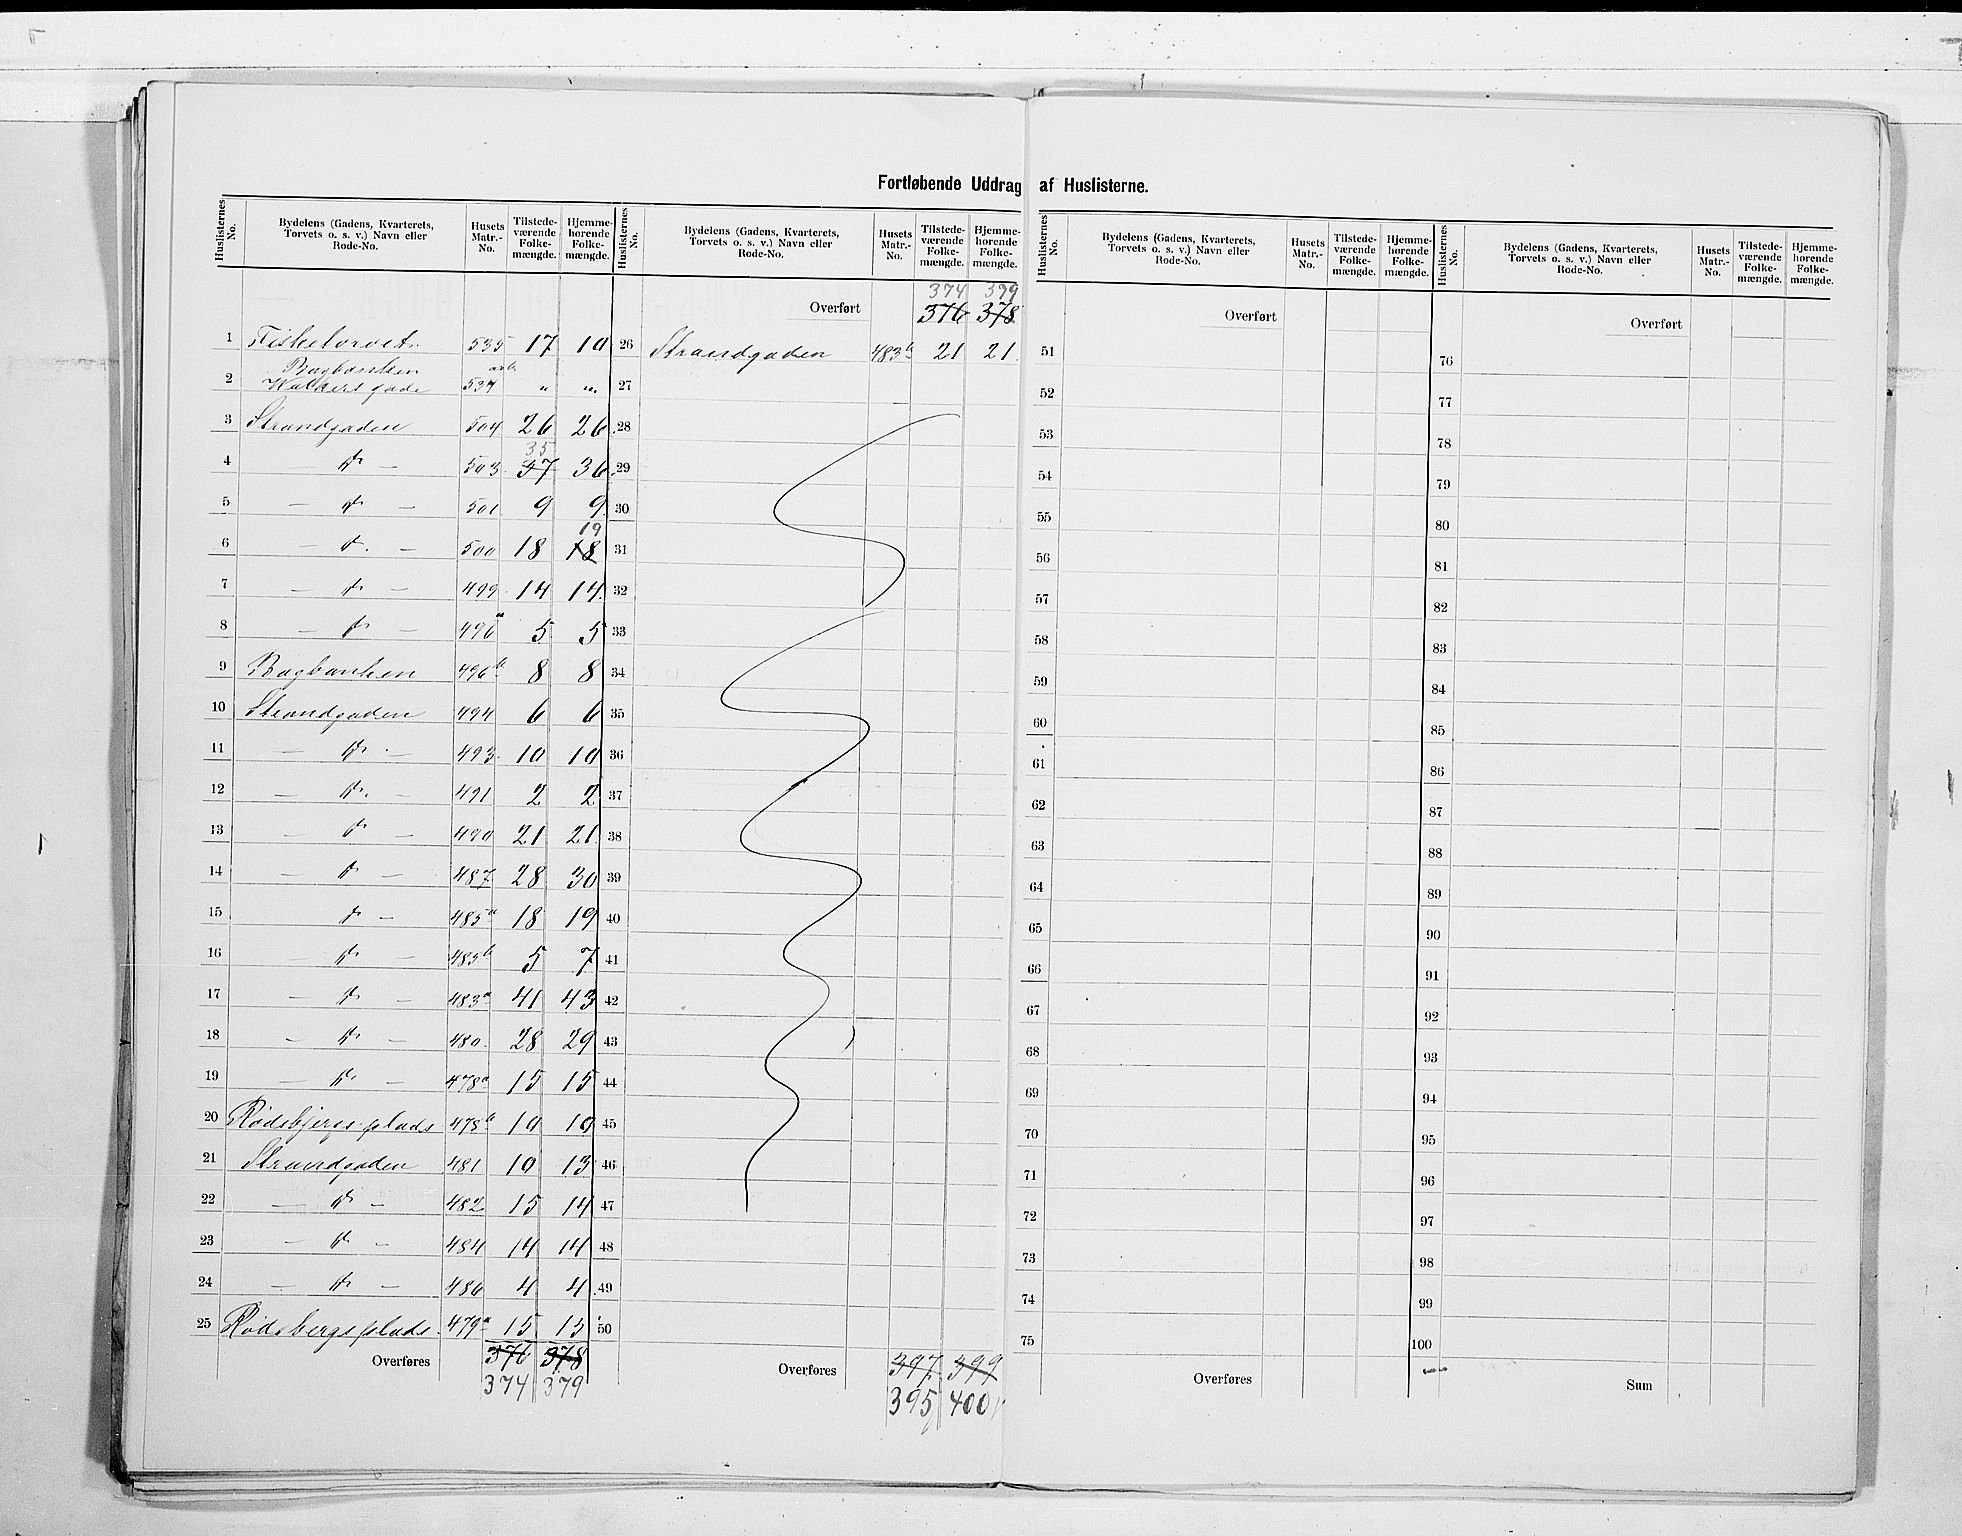 Fortløbende Uddrag af Huslisterne.
Huslisternes No. | Bydelens (Gadens, Kvarterets, Torvets o. s. v.) Navn eller Rode-No. | Husets Matr.-No. | Tilstedeværende Folkemængde. | Hjemmehørende Folkemængde.
1 Fisketorvet. 535 17 10
2 Bagbanken 534
3 Strandgaden 504 26 26
4 — do — 503. 37 35 36
5 — do — 501 9 9
6 — do. — 500 18 18 19
7 — do — 499. 14 14
8 — do — 496a 5 5
9 Bagbanken 496b 8 8
10 Strandgaden 494 6 6
11 — do — 493. 10 10
12 — do. — 491 2 2
13 — do — 490 21 21
14 — do — 487 28 30
15 do — 485a 18 19
16 — do — 485b 5 7
17 — do — 483a 41 43
18 — do — 480. 28 29
19 — do. — 478a 15 15
20 Rødsbjergsplads 478b 10 10
21 Strandgaden 481 10 13
22 — do — 482 15 14
23 — do — 484 14 14
24 — do — 486 4 4
25 Rødsbergsplads. 479a 15 15
Overføres 376 378
374 379
Huslisternes No. | Bydelens (Gadens, Kvarterets, Torvets o. s. v.) Navn eller Rode-No. | Husets Matr.-No. | Tilstedeværende Folkemængde. | Hjemmehørende Folkemængde.
374 379
Overført 376 378
26 Strandgaden 483b 21 21
27
28
29
30
31
32
33
34
35
36
37
38
39
40
41
42
43
44
45
46
47
48
49
50
Overføres 397 399
395 400
Huslisternes No. | Bydelens (Gadens, Kvarterets, Torvets o. s. v.) Navn eller Rode-No. | Husets Matr.-No. | Tilstedeværende Folkemængde. | Hjemmehørende Folkemængde.
Overført
51
52
53
54
55
56
57
58
59
60
61
62
63
64
65
66
67
68
69
70
71
72
73
74
75
Overføres
Huslisternes No. | Bydelens (Gadens, Kvarterets, Torvets o. s. v.) Navn eller Rode-No. | Husets Matr.-No. | Tilstedeværende Folkemængde. | Hjemmehørende Folkemængde.
Overført
76
77
78
79
80
81
82
83
84
85
86
87
88
89
90
91
92
93
94
95
96
97
98
99
100
Sum